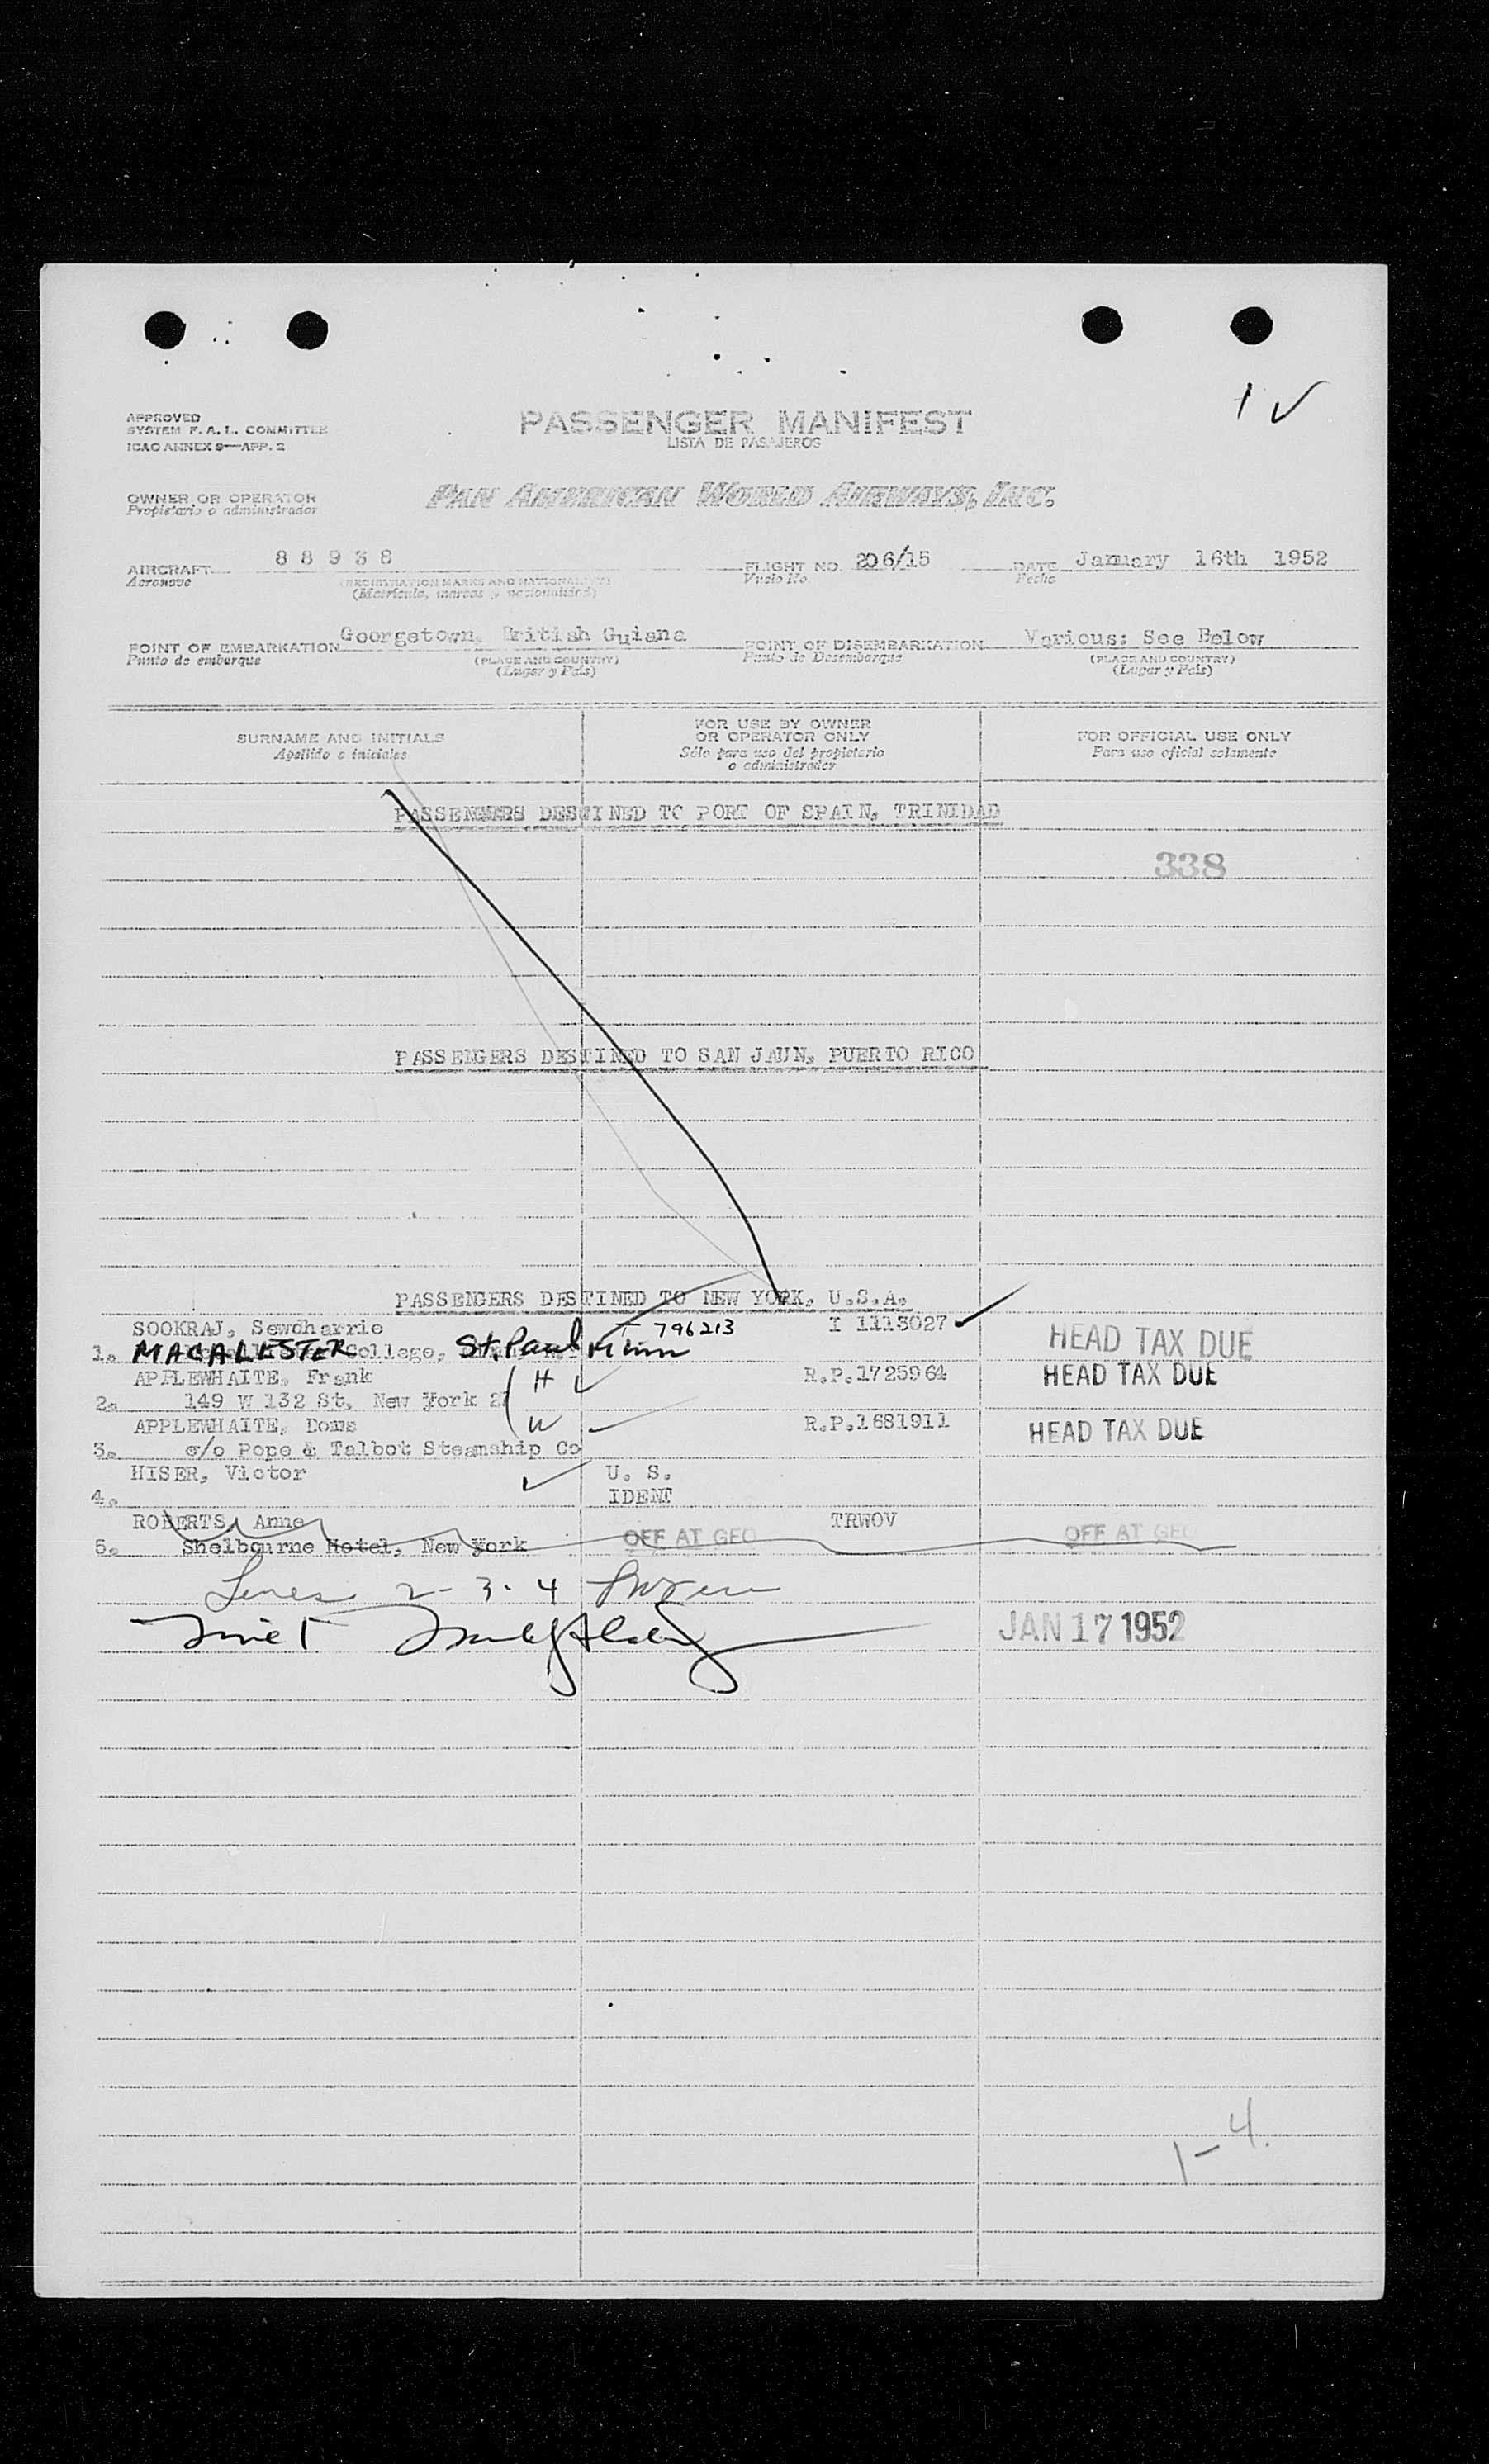 1 ✓
APPROVED
SYSTEM F. A. L. COMMITTEE
ICAO ANNEX 9—APP. 2
PASSENGER MANIFEST
LISTA DE PASAJEROS
OWNER OR OPERATOR PAN AMERICAN WORLD AIRWAYS, INC.
Propietario o administrador
AIRCRAFT 8 8 9 3 8 FLIGHT NO. 206/15 DATE January 16th 1952
Aeronave (REGISTRATION MARKS AND NATIONALITY) Vuelo No. Fecha
(Matrícula, marcas y nacionalidad)
POINT OF EMBARKATION Georgetown, British Guiana POINT OF DISEMBARKATION Various: See Below
Punto de embarque (PLACE AND COUNTRY) Punto de Desembarque (PLACE AND COUNTRY)
(Lugar y País) (Lugar y País)
SURNAME AND INITIALS FOR USE BY OWNER OR OPERATOR ONLY FOR OFFICIAL USE ONLY
Apellido e iniciales Sólo para uso del propietario o administrador Para uso oficial solamente
PASSENGERS DESTINED TO PORT OF SPAIN, TRINIDAD
338
PASSENGERS DESTINED TO SAN JAUN, PUERTO RICO
PASSENGERS DESTINED TO NEW YORK, U.S.A.
SOOKRAJ, Sewdharrie 796213 I 1113027 ✓
1. MACALESTER College, St. Paul Minn HEAD TAX DUE
APPLEWHAITE, Frank H ✓ R.P.1725964 HEAD TAX DUE
2. 149 W 132 St, New York 27
APPLEWHAITE, Doms W R.P.1681911 HEAD TAX DUE
3. c/o Pope & Talbot Steamship Co
HISER, Victor ✓ U. S.
4. IDENT
ROBERTS, Anne TRWOV
5. Shelbourne Hotel, New York OFF AT GEO OFF AT GEO
Lines 2-3-4
JAN 17 1952
1-4.